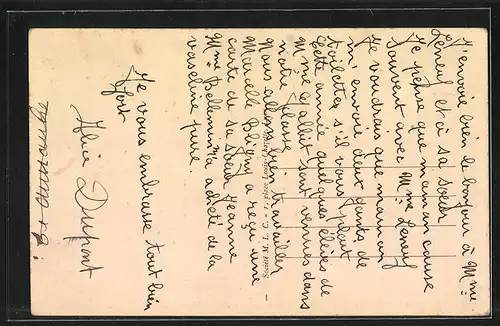 J'envoie bien le bonjour à Mme
Leneuf et à sa sœur
Je pense que maman cause
souvent avec Mme Leneuf
Je voudrais que maman
m'envoie deux gants de
toilettes s'il vous plait
Cette année quelques élèves de
Mme allait sont venues dans
notre classe
Nous allons bien travailler
Marcelle Bligny a reçu une
carte de sa sœur Jeanne
Mme Bellemin m'a acheté de la
vaseline pure.
Je vous embrasse tout bien
fort
Alice Dupont